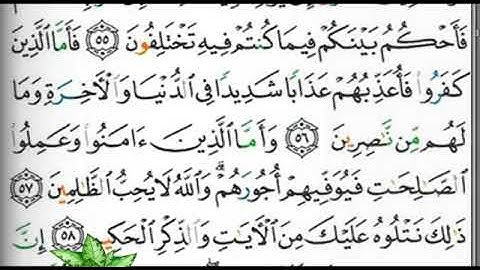 فَأَحْكُمُ بَيْنَكُمْ فِيمَا كُنتُمْ فِيهِ تَخْتَلِفُونَ ٥٥ فَأَمَّا الَّذِينَ
كَفَرُوا فَأُعَذِّبُهُمْ عَذَابًا شَدِيدًا فِي الدُّنْيَا وَالْآخِرَةِ وَمَا
لَهُم مِّن نَّاصِرِينَ ٥٦ وَأَمَّا الَّذِينَ ءَامَنُوا وَعَمِلُوا
الصَّالِحَاتِ فَيُوَفِّيهِمْ أُجُورَهُمْ وَاللَّهُ لَا يُحِبُّ الظَّالِمِينَ ٥٧
ذَٰلِكَ نَتْلُوهُ عَلَيْكَ مِنَ الْآيَاتِ وَالذِّكْرِ الْحَكِيمِ ٥٨ إِنَّ